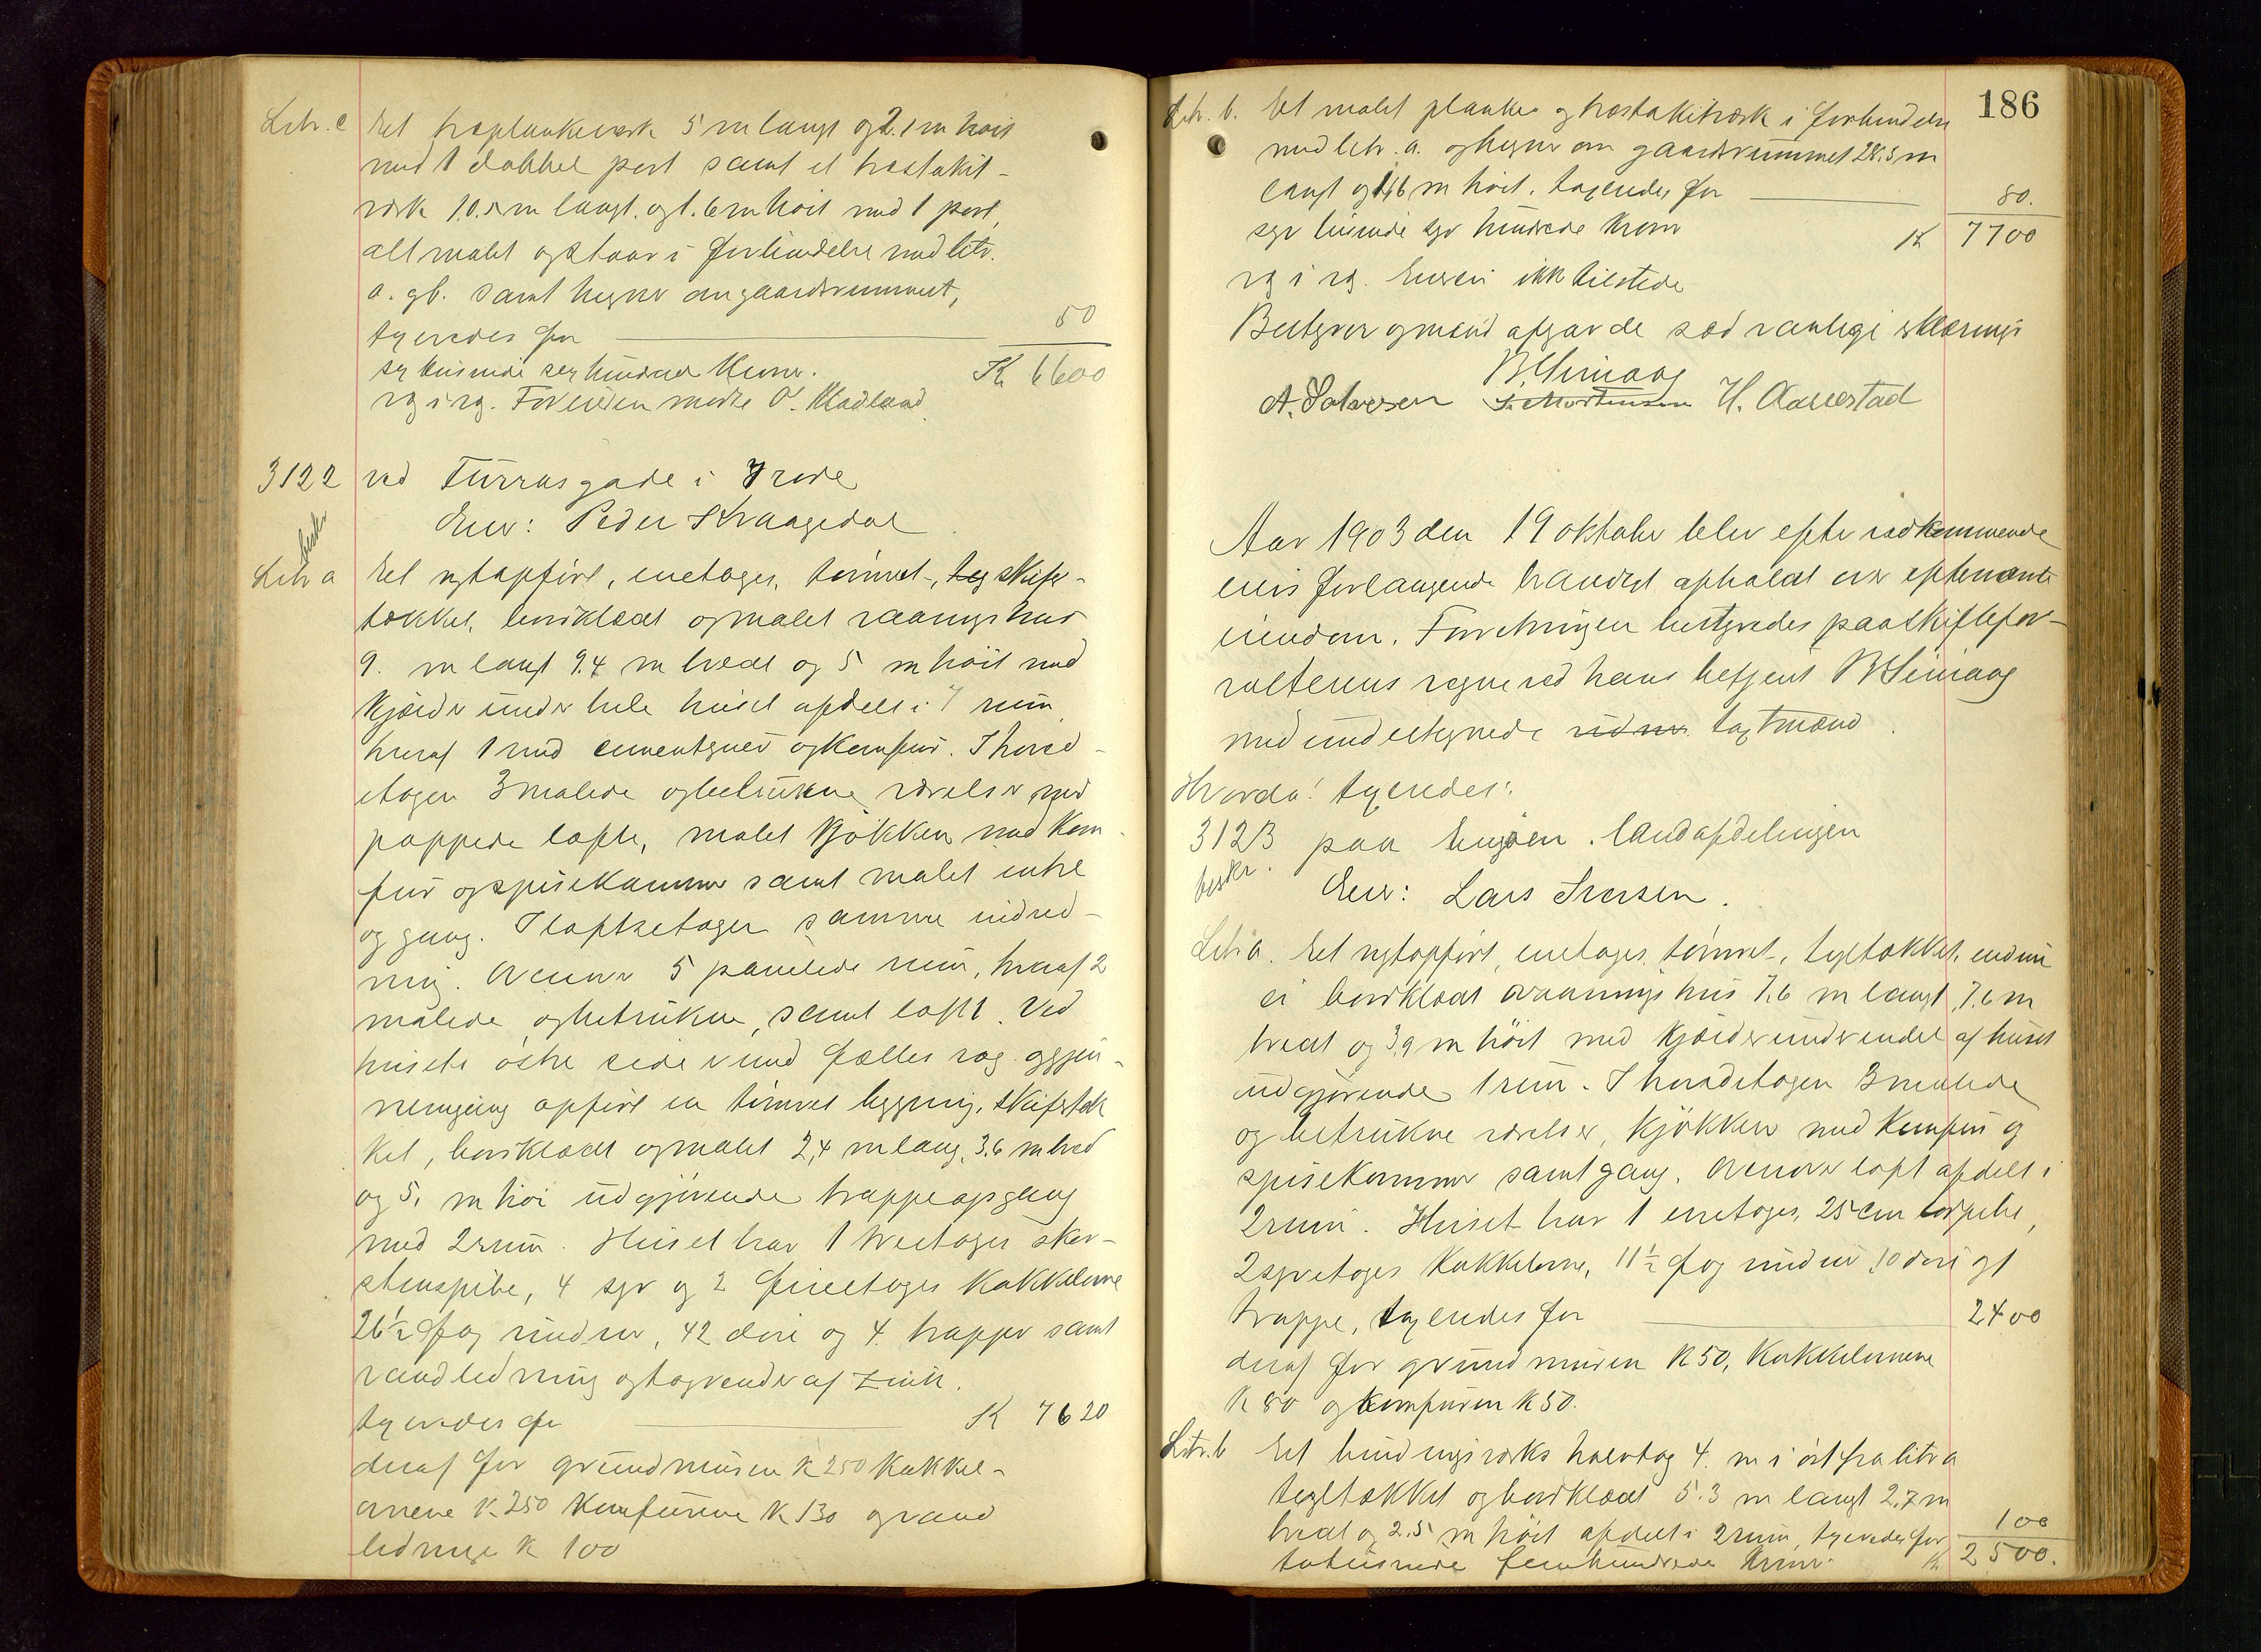 Litr. c Et træplankeværk 5 m langt og 2.1 m høit
med 1 dobbel port samt et træstakit-
værk 10.5 m langt og 1.6 m høit med 1 port,
alt malet og staar i forbindelse med litr.
a. og b. samt hegner om gaardsrummet,
taxeredes for 50
sex tusinde sex hundrede kroner. K 6600
For eieren mødte O. Madland
3122 ved Furrasgade i 7 rode
beskr.
Eier: Peder Kraagedal
Litr a Et nyopført, enetages, tømret, teg skifer-
tækket, bordklædt og malet vaaningshus
9. m langt 9.4 m bredt og 5 m høit med
kjælder under hele huset afdelt i 7 rum
hvoraf 1 med cementgulv og komfur. I hoved-
etagen 3 malede og betrukne værelser med
pappede lofte, malet kjøkken med kom-
fur og spisekammer samt malet entre
og gang. I loftsetagen samme indred-
ning. Ovenover 5 panelede rum, hvoraf 2
malede og betrukne, samt loft. Ved
husets østre side er med fælles væg og gjen-
nemgang opført en tømret bygning, skifertæk
ket, bordklædt og malet 2,4 m lang, 3.6 m bred
og 5. m høi udgjørende trappeopgang
med 2 rum. Huset har 1 treetages skor-
stenspibe, 4 syv og 2 fireetages kakkelovne
26½ fag vinduer, 42 døre og 4. trapper samt
vandledning og tagrender af zink.
taxeredes for K 7620
deraf for grundmuren K 250 kakkel-
ovnene K 250 komfurene K 130 og vand
ledninge K 100
186
Litr. b. Et malet planke og træstakitværk i forbindelse
med litr. a. og hegner om gaardsrummet 28.5 m
langt og 1,6 m høit. taxeredes for 80.
syv tusinde syv hundrede kroner K 7700
Eieren ikke tilstede
Bestyrer og mænd afgav de sædvanlige erklæringer
A. Salvesen S. Mortensen H. Aarrestad
Aar 1903 den 19 oktober blev efter vedkommende
eiers forlangende branntaxt afholdt over efternævnte
eiendom. Forretningen bestyredes paa skiftefor-
valterens vegne ved hans betjent
med undertegnede taxtmænd.
Hvorda! taxeredes:
3123 paa Engøen. landafdelingen
beskr.
Eier: Lars Iversen.
Litr a. Et nyopført, enetages, tømret, tegltækket, endnu
ei bordklædt vaaningshus 7,6 m langt, 7,6 m
bredt og 3,9 m høit med kjælder under endel af huset
udgjørende 1 rum. I hovedetagen 3 malede
og betrukne værelser, kjøkken med komfur og
spisekammer samt gang. Ovenover loft afdelt i
2 rum. Huset har 1 enetages, 25 cm pibe,
2 syvetages kakkelovne, 11½ fag vinduer 10 døre og 1
trappe, taxeredes for 2400
deraf for grundmuren K 50, kakkelovnene
K 80 og komfuren K 50.
Litr. b Et bindingsværks halvtag 4. m i øst fra litr a
tegltækket og bordklædt 5.3 m langt 2,7 m
bredt og 2.5 m høit afdelt i 2 rum, taxeredes for 100
totusinde femhundrede kroner K 2500.